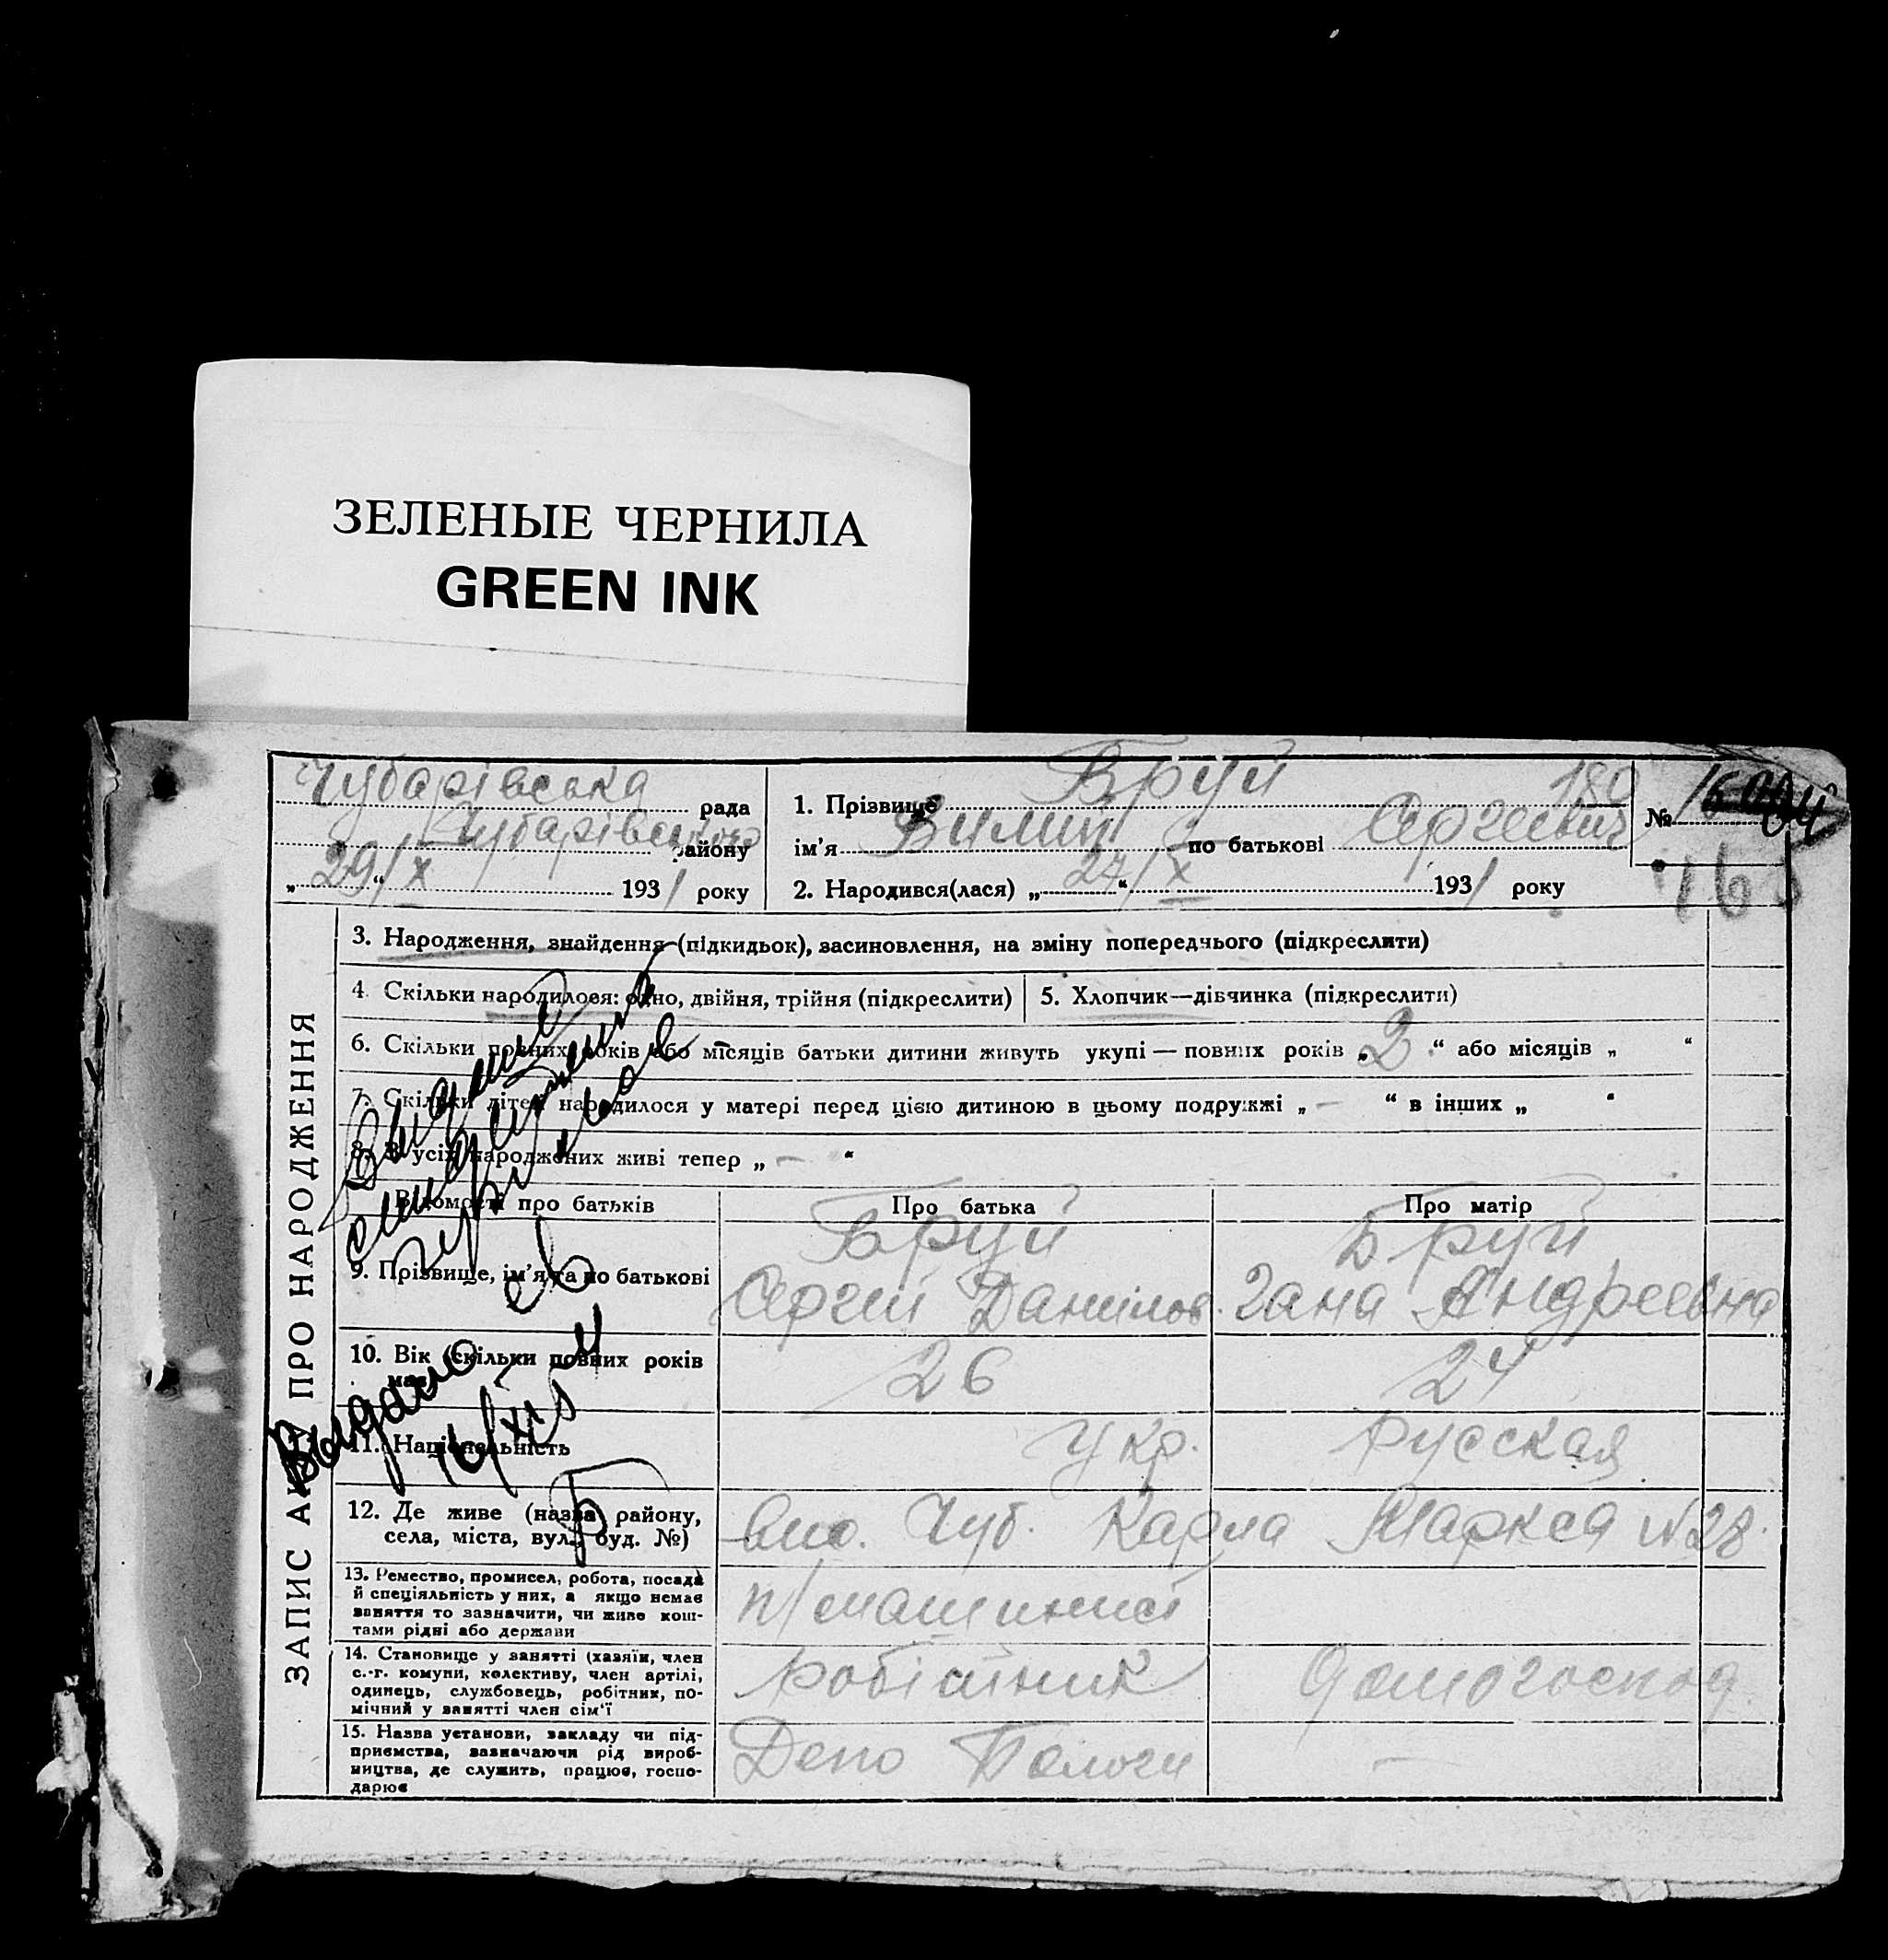 ЗЕЛЕНЫЕ ЧЕРНИЛА
GREEN INK
Чубарівська рада
Чубарівського району
„29/X“ 1931 року
1. Прізвище Бруй
180
ім'я Вилий по батькові Сергеевич
2. Народився(лася) „27/X“ 1931 року
№
ЗАПИС АКТУ ПРО НАРОДЖЕННЯ
3. Народження, знайдення (підкидьок), засиновлення, на зміну попереднього (підкреслити)
4. Скільки народилося: одно, двійня, трійня (підкреслити)
5. Хлопчик—дівчинка (підкреслити)
6. Скільки повних років або місяців батьки дитини живуть укупі — повних років „2“ або місяців „ “
7. Скільки дітей народилося у матері перед цією дитиною в цьому подружжі „—“ в інших „ “
8. З усіх народжених живі тепер „—“
Відомості про батьків
Про батька
Про матір
9. Прізвище, ім'я та по батькові
Бруй
Сергій Данилов.
Бруй
Гана Андреевна
10. Вік (скільки повних років має)
26
24
11. Національність
Укр.
русская
12. Де живе (назва району, села, міста, вул., буд. №)
Чуб. Карла Маркса №28.
13. Ремество, промисел, робота, посада й спеціяльність у них, а якщо немає заняття то зазначити, чи живе коштами рідні або держави
п/машинист
14. Становище у занятті (хазяїн, член с.-г. комуни, колективу, член артілі, одинець, службовець, робітник, помічний у занятті член сім'ї
робітник
домогоспод
15. Назва установи, закладу чи підприємства, зазначаючи рід виробництва, де служить, працює, господарює
Депо Пологи
—
Выдано
16/XI